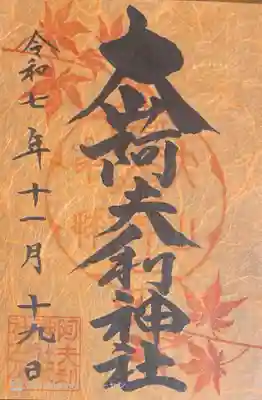 大山阿夫利神社
令和七年十一月十九日